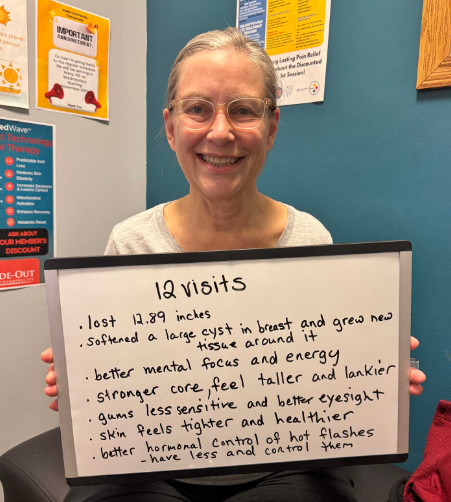 IMPORTANT
ANNOUNCEMENT
edWave™
t Technology
Therapy
Predictable Inch
Loss
Elasticity
Mitochondrial
Activation
Enhance Recovery
ASK ABOUT
OUR MEMBER'S
DISCOUNT
DE-OUT
ng Lasting Pain Relief
hout the Discounted
1st Session!
12 visits
• lost 12.89 inches
• softened a large cyst in breast and grew new
tissue around it
• better mental focus and energy
• stronger core, feel taller and lankier
• gums less sensitive and better eyesight
• skin feels tighter and healthier
• better hormonal control of hot flashes
- have less and control them